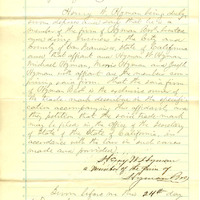 Henry W. Hyman being duly
sworn deposes and says that he is a
member of the firm of Hyman Bro's
doing business in the City and
County of San Francisco, State of California
and that affiant and Hyman W. Hyman,
Michael Hyman, Morris Hyman, and Joseph
Hyman with affiant are the members com-
posing said firm. That the said firm
of Hyman Bro's is the exclusive owner of
the trade mark
action accompanying this affidavit and
this petition that the said trade mark
may be filed in the office of the Secretary
of State of the State of California in
accordance with the law in such cases
made and provided.
Henry W. Hyman
a member of the firm of
Hyman Bros
Sworn before me this 24th day